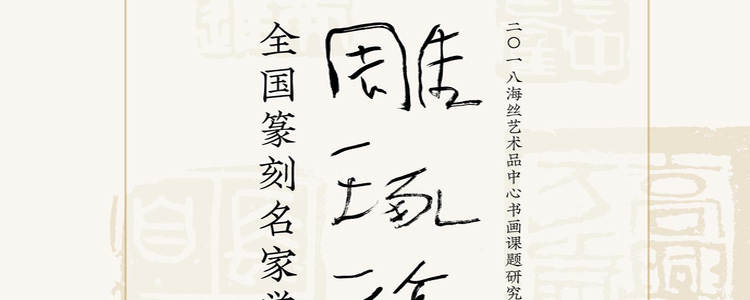 二〇一八海丝艺术品中心书画课题研究
雕琢
全国篆刻名家学